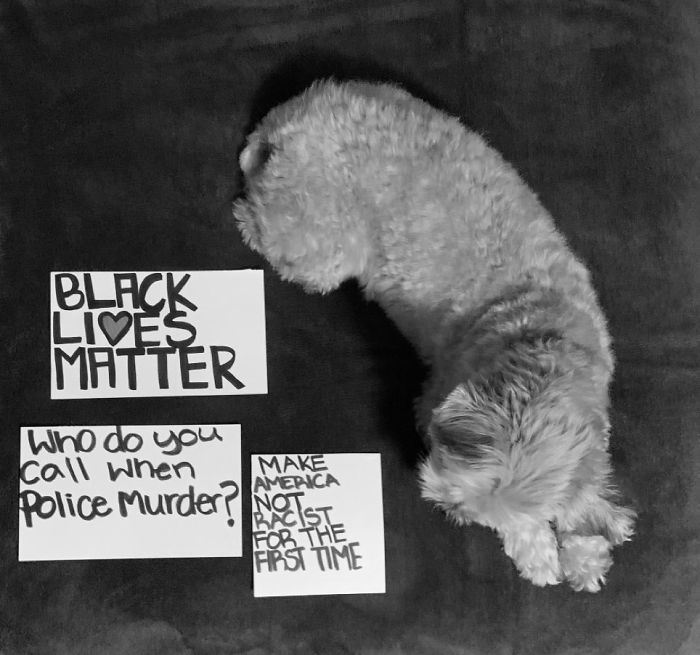 BLACK
LI♥ES
MATTER
Who do you
call when
Police Murder?
MAKE
AMERICA
NOT
RACIST
FOR THE
FIRST TIME